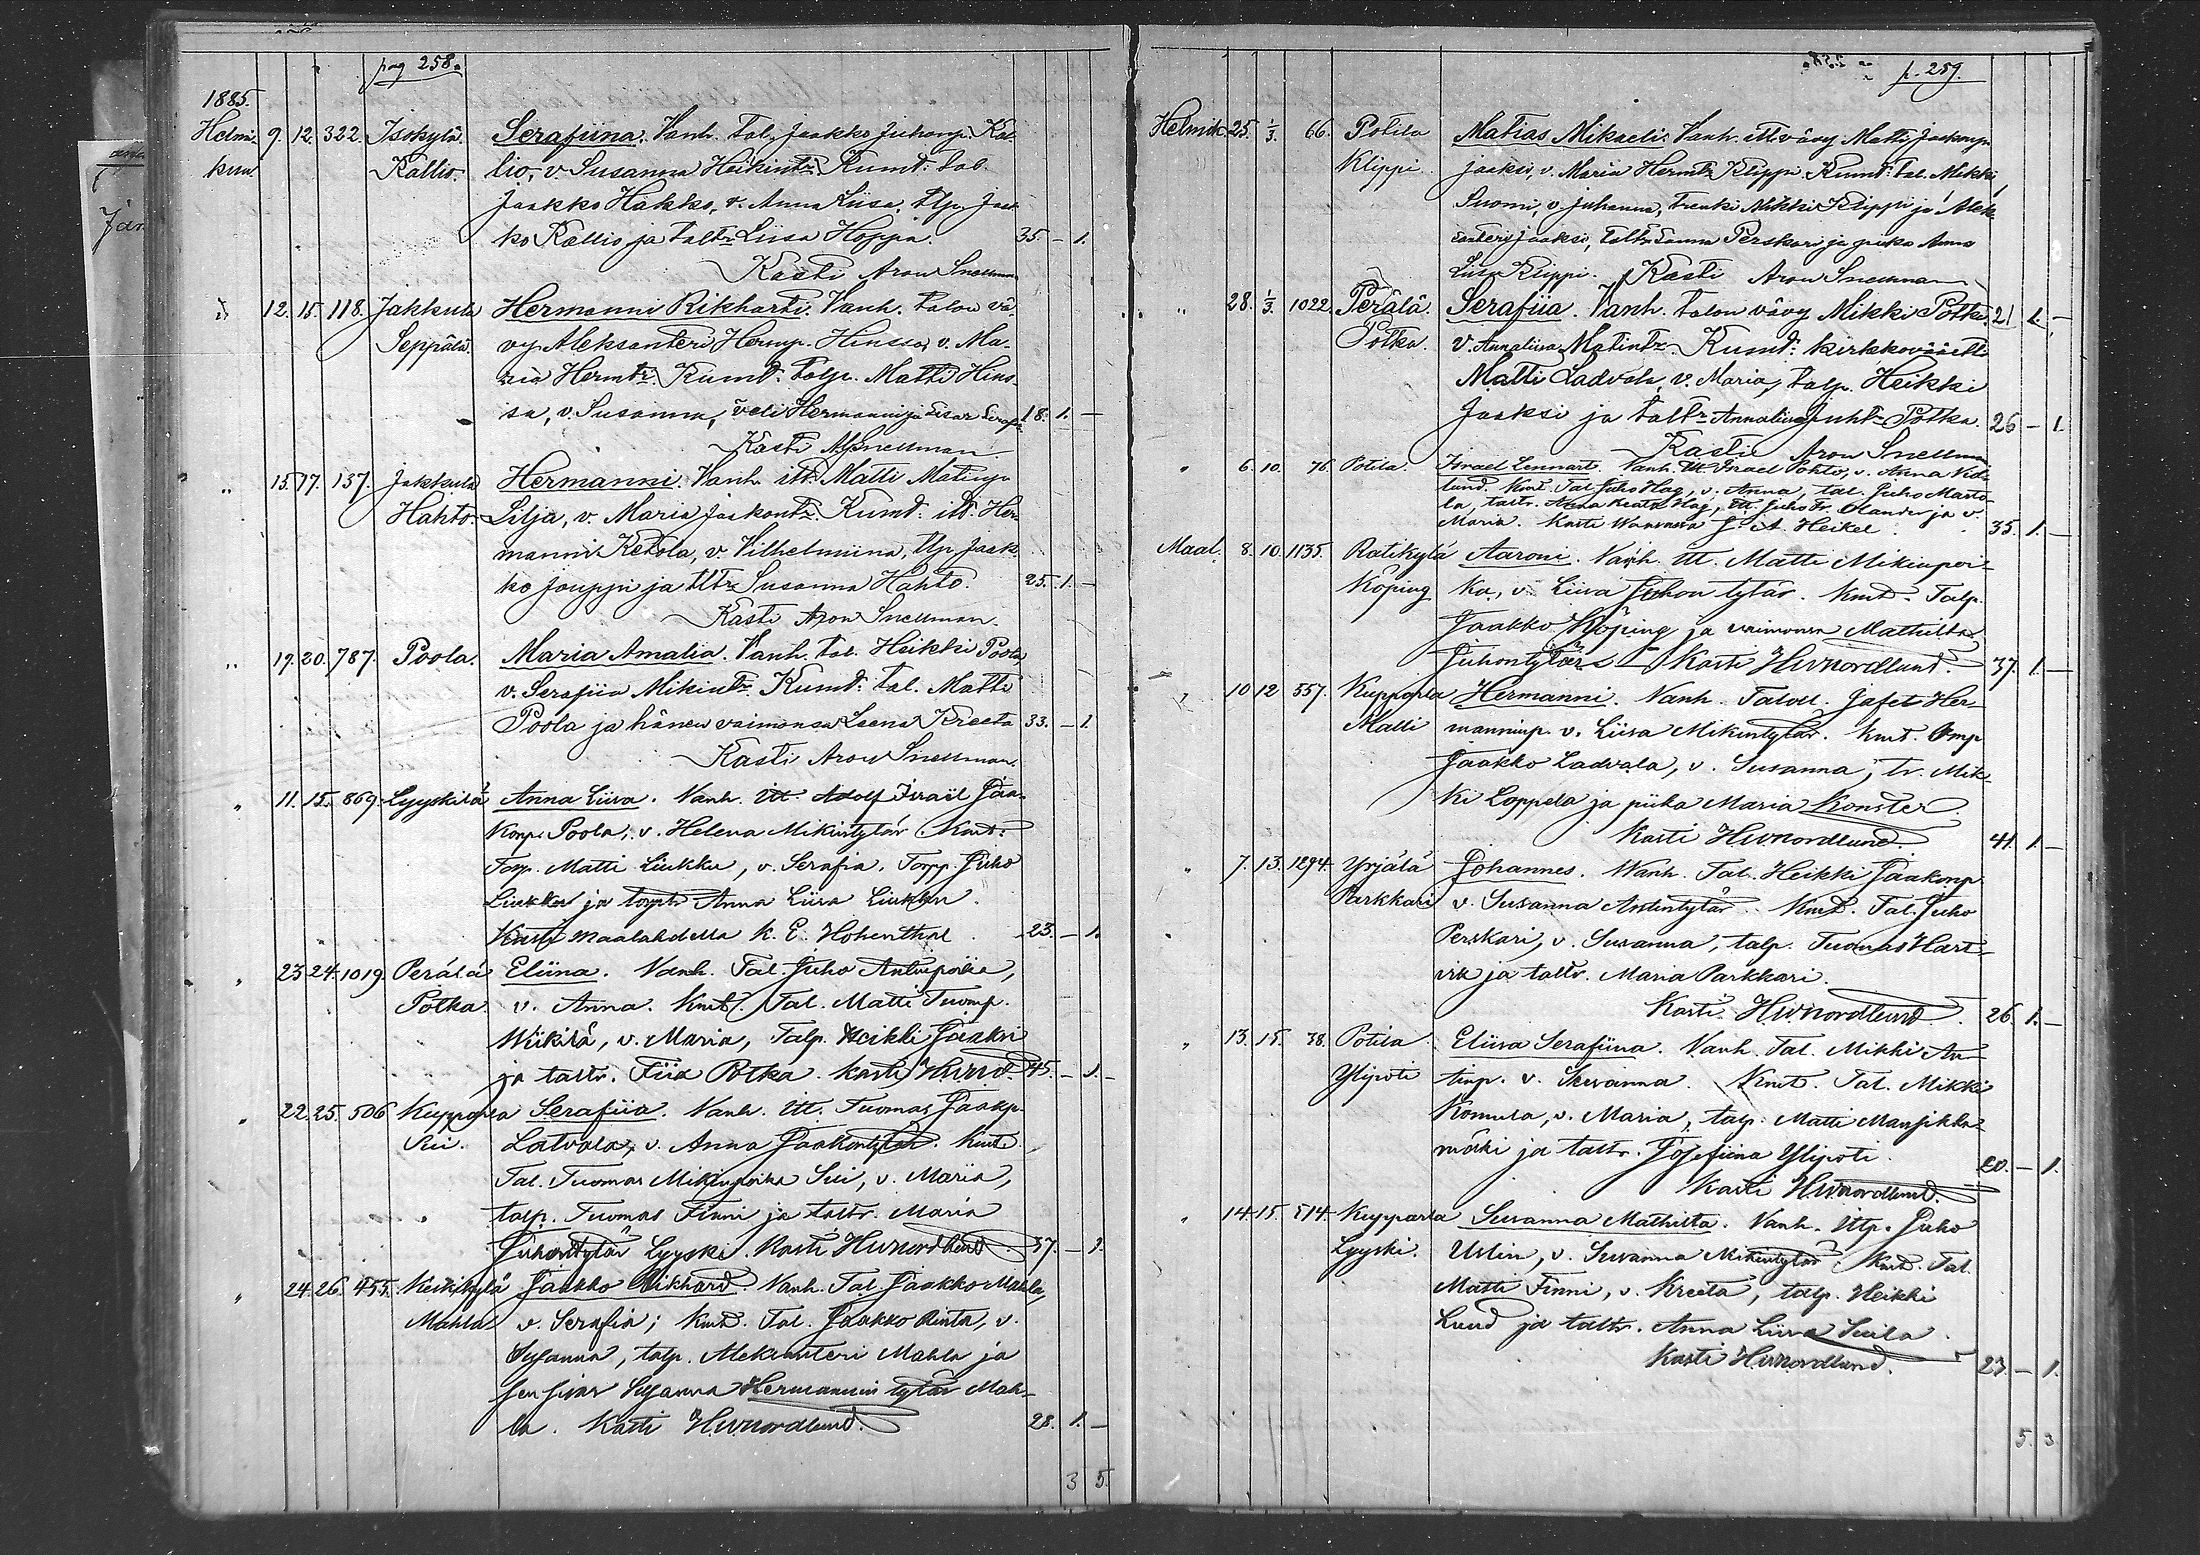 pag 258.
1885.
Helmi- 9. 12. 322. Isokylä Serafiina. Vanh. tal. Jaakko Juhanp. Kal-
kuu Kallio. lio, v. Susanna Heikintr. Kumd: tal.
Jaakko Hakko, v. Anna Liisa, tlp. Jaak-
ko Kallio ja taltr Liisa Hoppa. 35. — 1.
Kasti Aron Snellman
12. 15. 118. Jakkula Hermanni Rikharti. Vanh. talon vä-
Seppälä. vy Aleksanteri Hermp. Hinssa, v. Ma-
ria Hermtr. Kumd: talp. Matti Hins-
sa, v. Susanna, veli Hermanni ja sisar 18. 1. —
Kasti Snellman.
" 15. 17. 137. Jakkula Hermanni. Vanh. itt. Matti Matinp.
Hahto. Lilja, v. Maria Jaakontr. Kumd: itt. Her-
manni Ketola, v. Vilhelmiina, tlp. Jaak-
ko Jouppi ja tltr Susanna Hahto. 25. 1. —
Kasti Aron Snellman.
" 19. 20. 787. Poola. Maria Amalia. Vanh. tal. Heikki Poola
v. Serafiia Mikintr. Kumd: tal. Matti
Poola ja hänen vaimonsa Leena Kreeta 33. — 1.
Kasti Aron Snellman.
" 11. 15. 869. Lyyskilä Anna Liisa. Vanh. itt. Adolf Israël Jaa-
konp. Poola, v. Helena Mikintytär. Kmt:
Torp. Matti Liukku, v. Serafia, Torpp. Juho
Liukku ja torptr Anna Liisa Liukku.
Kasti Maalahdella K. E. Hohenthal. 23. — 1.
" 23. 24. 1019. Perälä Eliina. Vanh. Tal. Juho Antinpoika,
Potka v. Anna. Kmt. Tal. Matti Tuomp.
Wiikilä, v. Maria, Talp. Heikki Jaaksi
ja taltr. Fiia Potka. Kasti 45. — 1.
" 22. 25. 506. Kupparla Serafiia. Vanh. itt. Tuomas Jaakp.
Sii. Latvala, v. Anna Jaakontytär. Kmt.
Tal. Tuomas Mikinpoika Sii, v. Maria,
talp. Tuomas Finni ja taltr. Maria
Juhontytär Lyyski. Kasti HWnordlund. 37. — 1.
" 24. 26. 455. Keskikylä Jaakko Rikhard. Vanh. Tal. Jaakko Mahla,
Mahla v. Serafia; Kmt. Tal. Jaakko Rinta, v.
Susanna, talp. Aleksanteri Mahla ja
sen sisar Susanna Hermannin tytär Mah-
la. Kasti HWnordlund. 28. 1. —
3 5.
p. 259.
Helmik. 25. 1/3. 66. Potila Matias Mikaeli. Vanh. itt. vävy Matti Jaakonp.
Klippi. Jaaksi, v. Maria Hermtr Klippi. Kumd: tal. Mikki
Suomi, v. Juhanna, trenki Mikki Klippi ja Alek-
santeri Jaaksi, taltr Sanna Perskari ja piika Anna
Liisa Klippi. Kasti Aron Snellman
" 28. 1/3. 1022. Perälä. Serafiia. Vanh. talon vävy Mikki Potka, 21 1. —
Potka. v. Annaliisa Matintr. Kumd: kirkkoväärti
Matti Ladvala, v. Maria, talp. Heikki
Jaaksi ja taltr Annaliisa Juhtr Potka. 26 — 1.
Kasti Aron Snellman
" 6. 10. 76. Potila. Israel Lennart. Vanh. itt. Israel Pohto, v. Anna Vid-
lund. Kmt. Tal. Juho Hag, v. Anna, tal. Juho Marto-
la, taltr. Anna Kreeta Hag, itt. Juho Fr. Olander ja v.
Maria. Kasti J. A. Heikel. 35. 1. —
Maal. 8. 10. 1135. Ratikylä Aaroni. Vanh. itt. Matti Mikinpoi-
Köping ka, v. Liisa Juhon tytär. Kmt. Talp.
Jaakko Köping ja vaimonsa Mathilta
Juhontytär. Kasti HWnordlund. 37. 1. —
" 10 12 557. Kupparla Hermanni. Vanh. Taloll. Jafet Her-
Malli manninp. v. Liisa Mikintytär. Kmt. Omp
Jaakko Ladvala, v. Susanna, tr. Mik-
ki Loppela ja piika Maria Konster.
Kasti HWnordlund. 41. 1. —
" 7. 13. 1294. Yrjälä Johannes. Wanh. Tal. Heikki Jaakonp.
Parkkari v. Susanna Antintytär. Kmt. Tal. Juho
Perskari, v. Susanna, talp. Tuomas Hart-
vik ja taltr. Maria Parkkari.
Kasti HWnordlund. 26. 1. —
" 13. 15. 78. Potila Eliisa Serafiina. Vanh. Tal. Mikki An-
Ylipoti tinp. v. Susanna. Kmt. Tal. Mikki
Komula, v. Maria, talp. Matti Mansikka-
mäki ja taltr. Josefiina Ylipoti. 20. — 1.
Kasti HWnordlund.
" 14. 15. 514. Kupparla Susanna Mathilta. Vanh. Itp. Juho
Lyyski. Uslin, v. Susanna Mikintytär. Kmt. Tal.
Matti Finni, v. Kreeta, talp. Heikki
Lund ja taltr. Anna Liisa Suila.
Kasti HWnordlund. 23. — 1.
5. 3